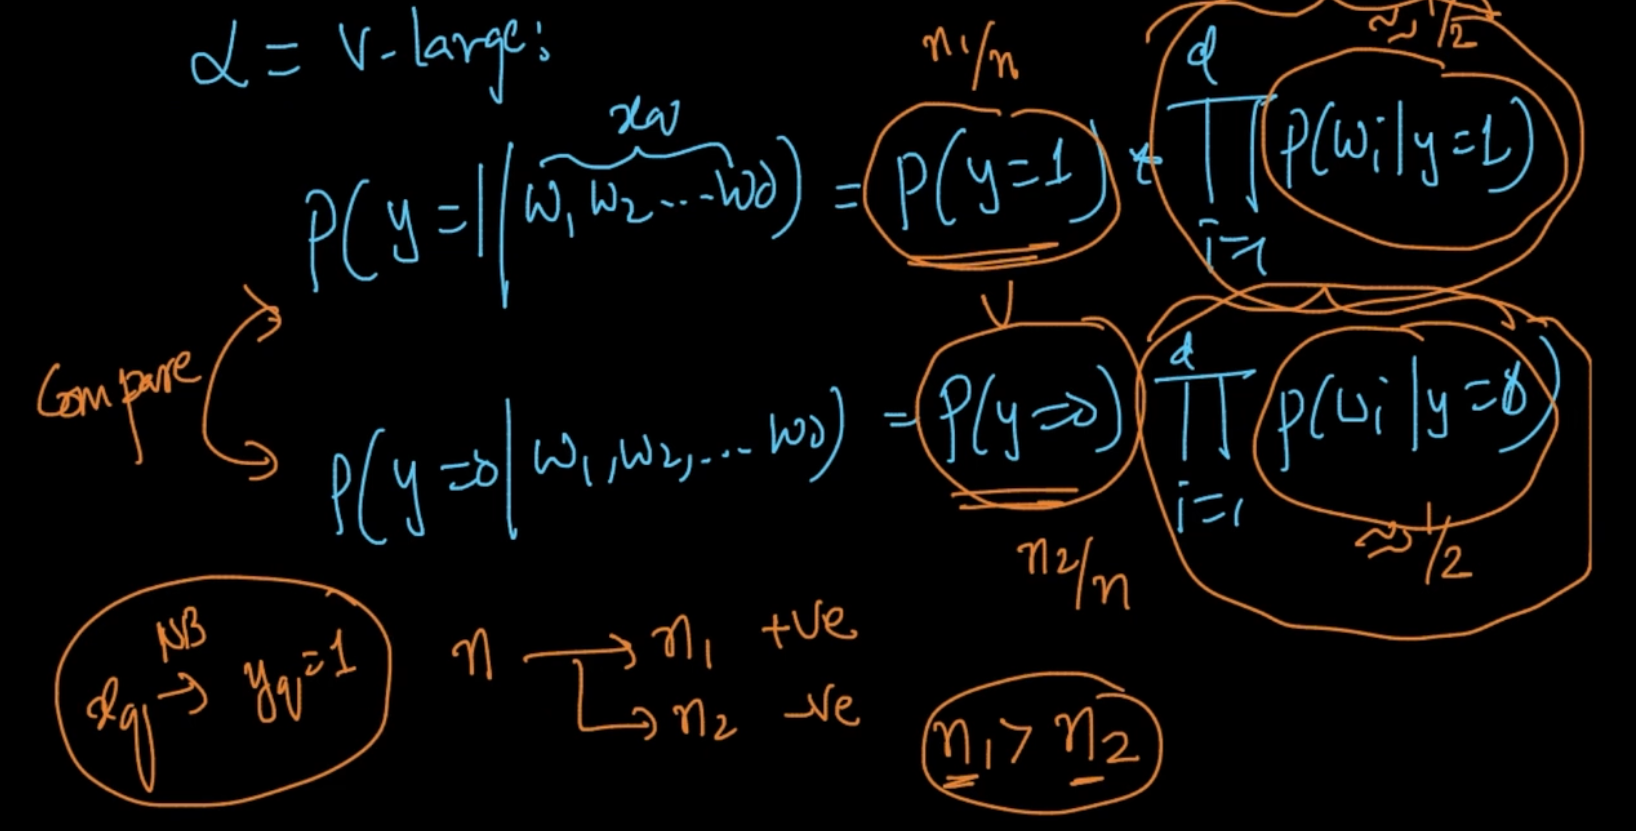 α = v-large:
n1/n
≈ 1/2
xq
P(y=1|w1, w2 ... wd) = P(y=1) * d ∏ i=1 P(wi|y=1)
>
Compare
P(y=0|w1, w2, ... wd) = P(y=0) d ∏ i=1 P(wi|y=0)
n2/n
≈ 1/2
NB
xq → yq=1
n → n1 +ve
→ n2 -ve
n1 > n2